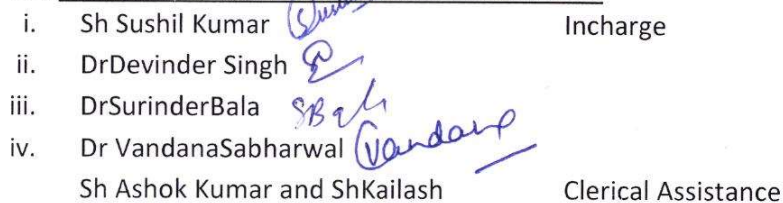 i. Sh Sushil Kumar Incharge
ii. DrDevinder Singh
iii. DrSurinderBala SBala
iv. Dr VandanaSabharwal Vandana
Sh Ashok Kumar and ShKailash Clerical Assistance